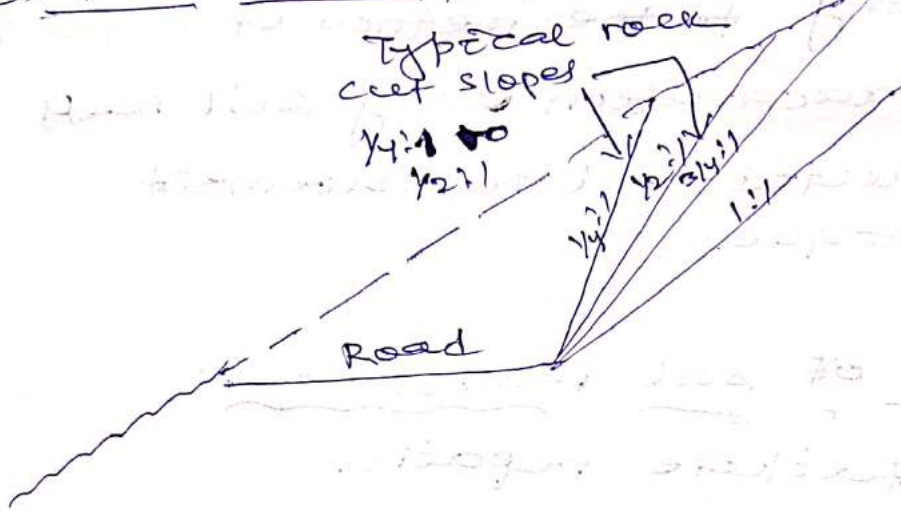 Typical rock
cut slopes
1/4:1 to
1/2:1
1/4:1
1/2:1
3/4:1
1:1
Road